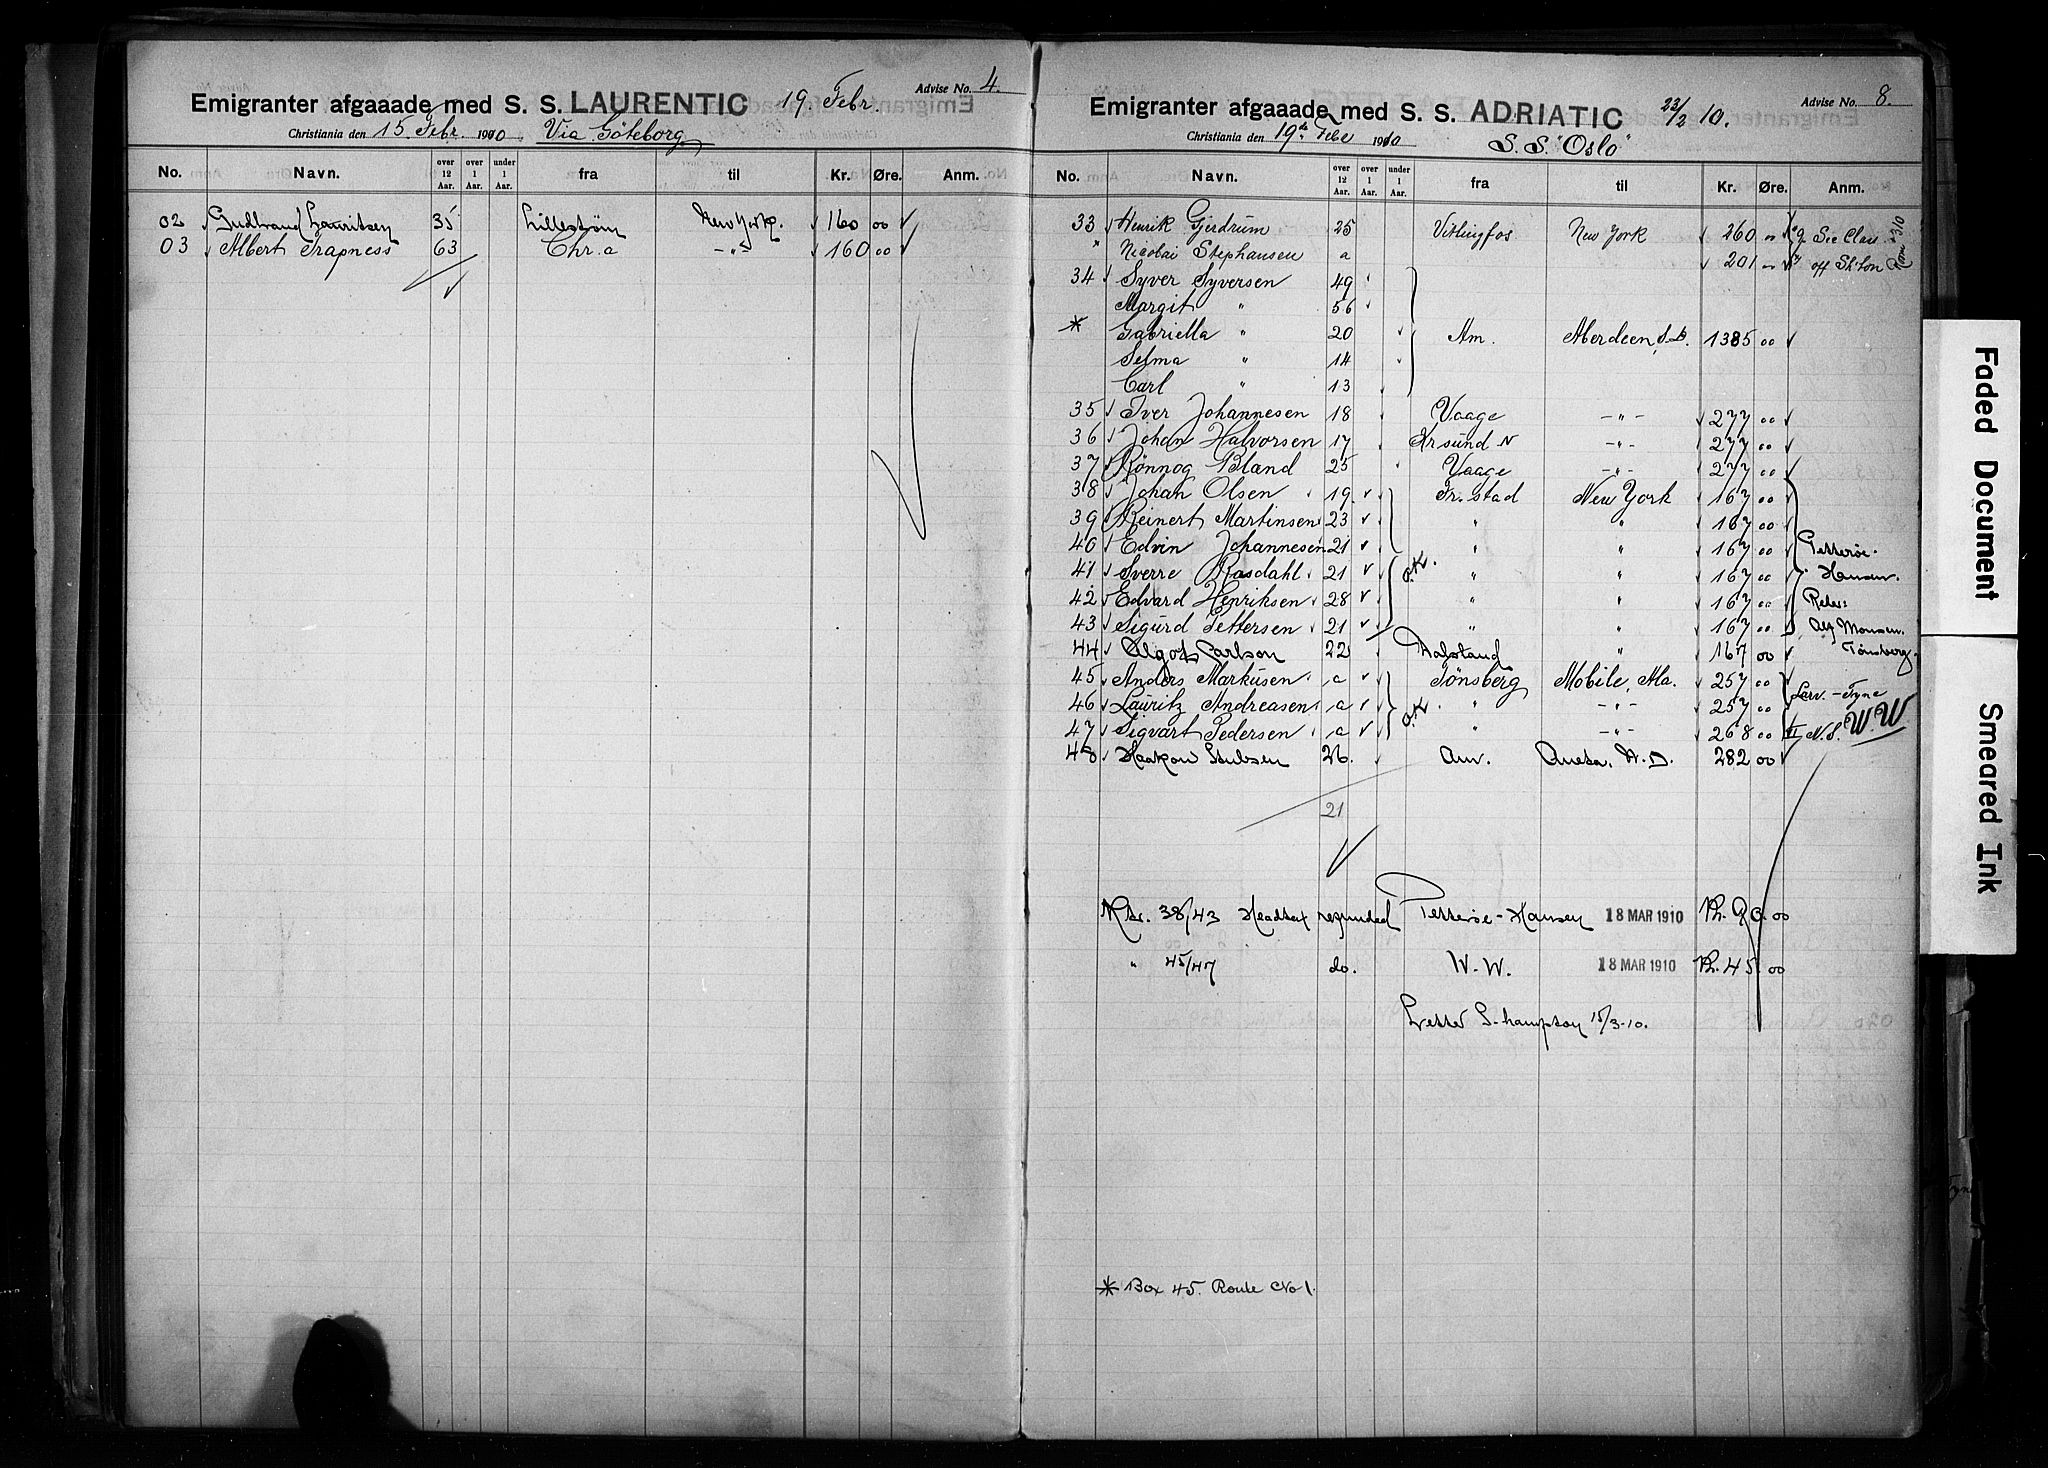 Advise No. 4.
Emigranter afgaaade med S. S. LAURENTIC 19. Febr.
Christiania den 15. Febr. 1910 Via Göteborg
No. Navn. over 12 Aar. over 1 Aar. under 1 Aar. fra til Kr. Øre. Anm.
02 Gudbrand Lauritsen 35 Lillestøm New York. 160 00
03 Albert Trapness 63 Chr.a -"- 160 00
Advise No. 8.
Emigranter afgaaade med S. S. ADRIATIC 23/2 10.
Christiania den 19de Febr 1910 S.S. "Oslo"
No. Navn. over 12 Aar. over 1 Aar. under 1 Aar. fra til Kr. Øre. Anm.
33 Henrik Gjerdrum 25 Vittingfos New York 260 "
" Nicolai Stephansen a 201 " off
34 Syver Syversen 49
Margit " 56
* Gabriella " 20 Am. Aberdeen, S.D. 1385 00
Selma " 14
Carl " 13
35 Iver Johannesen 18 Vaage -"- 277 00
36 Johan Halvorsen 17 Krsund N -"- 277 00
37 Rønnog Bland 25 Vaage -"- 277 00
38 Johan Olsen 19 Fr.stad New York 167 00
39 Reinert Martinsen 23 " " 167 00
40 Edvin Johannesen 21 " " 167 00 Petterøe-
41 Sverre Rasdahl 21 O.K. " " 167 00 Hansen.
42 Edvard Henriksen 28 " " 167 00
43 Sigurd Pettersen 21 " " 167 00 Alf Monsen.
44 Algot Carlson 22 " 167 00 Tønsberg.
45 Anders Markusen a Tønsberg Mobile, Ala. 257 00 Larv.-Tyne
46 Lauritz Andreasen a O.K. " -"- 257 00
47 Sigvart Pedersen a " -"- 268 00 II N.S. W.W.
48 Haakon Stubsen 26. Am. Aneta, N.D. 282 00
21
Nr. 38/43 Headtax refunded Petterøe-Hansen 18 MAR 1910 Kr. 90.00
" 45/47 do. W.W. 18 MAR 1910 Kr. 45.00
Letter S-hampton 15/3-10.
* Box 45. Route No 1.
Faded Document
Smeared Ink